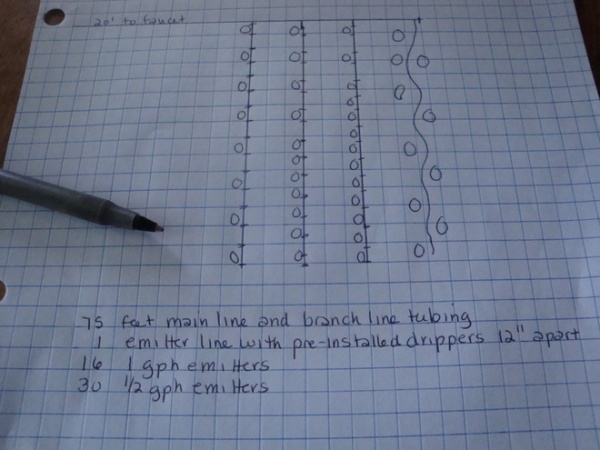 20' to faucet
75 feet main line and branch line tubing
1 emitter line with pre-installed drippers 12" apart
16 1 gph emitters
30 1/2 gph emitters